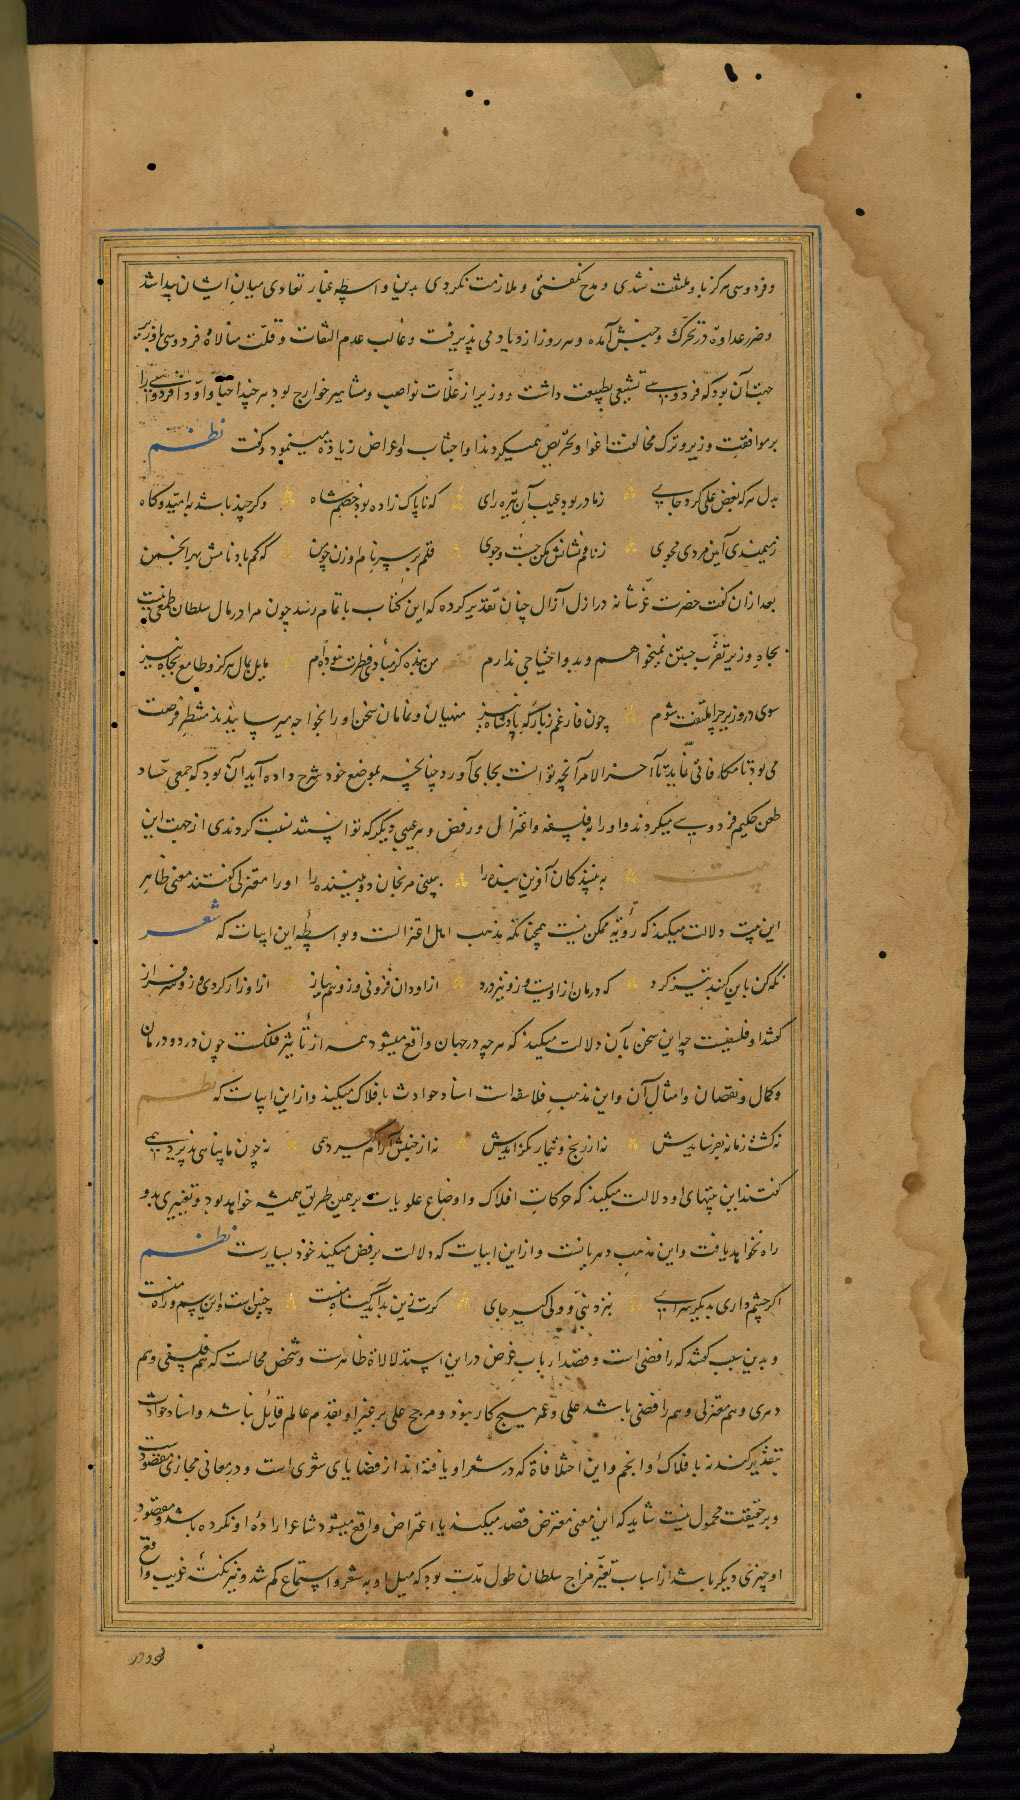 و فردوسی هرکز باو ملتفت نشدی و مدح نکفتی و ملازمت نکردی بدین واسطه غبار تعادی میان ایشان پیدا شد
و ضرر عداوة در تحرک و جنبش آمده و هر روز ازدیاد می پذیرفت و غالب عدم التفات و قلت مبالاة فردوسی با وزیر
جهت آن بود که فردوسی تشیعی بطبیعت داشت و وزیر از غلات نواصب و مشاهیر خوارج بود هر چند احبا و اودا فردوسی را
بر موافقت وزیر و ترک مخالفت اغوا و تحریص همیکردند او اجتناب و اعراض زیاده مینمود و کفت نظم
بدل هر که بغض علی کرد جای ز مادر بود عیب آن تیره رای که ناپاک زاده بود خصم شاه و کر چند باشد به
ز نام و نشانش مکن جست و جوی قلم بر سر نام او زن چو من که کم باد نامش بهر انجمن
بعد از ان کفت حضرت عز شانه در ازل آزال چنان تقدیر کرده که این کتاب باتمام رسد چون مرا در مال سلطان طمعی نیست
بجاه وزیر تقرب جستن نمیخواهم و بدو احتیاجی ندارم من بنده کز مبادی فطرت نبوده‌ام مایل بمال هرکز و طامع بجاه نیز
سوی در وزیر چرا ملتفت شوم چون فارغم ز بارکه پادشاه نیز منهیان و غمازان سخن او را بخواجه میرسانیدند منتظر فرصت
می بود تا مکافاتی نماید تا آخر الامر آنچه توانست بجای آورد چنانچه بموضع خود شرح داده آید آن بود که جمعی حساد
طعن حکیم فردوسی میکردند و او را به فلسفه و اعتزال و رفض و هر عیبی دیکر که توانستند نسبت کردندی از جهت این
بیت به بینندکان آفریننده را نبینی مرنجان دو بیننده را او را معتزلی کفتند معنی ظاهر
این بیت دلالت میکند که رؤیة ممکن نیست همچنانکه مذهب اهل اعتزالست و بواسطه این ابیات که شعر
نکه کن باین کنبد تیز کرد که درمان ازاویست و زو نیز درد ازاو دان فزونی و زو نیم
کفتند او فلسفیست چه این سخن بآن دلالت میکند که هر چه در جهان واقع میشود همه از تأثیر فلکست چون درد و درمان
و کمال و نقصان و امثال آن و این مذهب فلاسفه است اسناد حوادث بافلاک میکنند و از این ابیات که نظم
نه کشت زمانه بفرسایدش نه از رنج و تیمار بکزایدش نه از جنبش آرام کیرد همی نه چون ما تباهی پذیرد همی
کفتند این بیتهای او دلالت میکند که حرکات افلاک و اوضاع علویات بر همین طریق همیشه خواهد بود و تغییری بدو
راه نخواهد یافت و این مذهب دهریانست و از این ابیات که دلالت بر رفض میکند خود بسیارست نظم
اکر چشم داری بدیکر سرای بنزد نبی و ولی کیر جای کرت زین بد آید کناه منست چنین است و این رسم و راه منست
و بدین سبب کفتند که رافضی است و قصد ارباب غرض در این استدلالاة ظاهرست و شخص محالست که هم فلسفی و هم
دهری و هم معتزلی و هم رافضی باشد علی و عمر هیچ کار نبود و مرجح علی بر غیر او بقدم عالم قایل نباشد و اسناد حوادث
بتقدیر کند نه بافلاک و انجم و این اختلافاة که در شعر او یافته اند از قضایای شعری است و در معانی مجازی مقصودست
و بر حقیقت محمول نیست شاید که این معنی معترض قصد میکند یا اعتراض واقع میشود شاعر اراده او نکرده باشد و مقصود
او چیزی دیکر باشد از اسباب تغیر مزاج سلطان طول مدت بود که میل او به شعر و استماع کم شد و نیز نکته غریب واقع